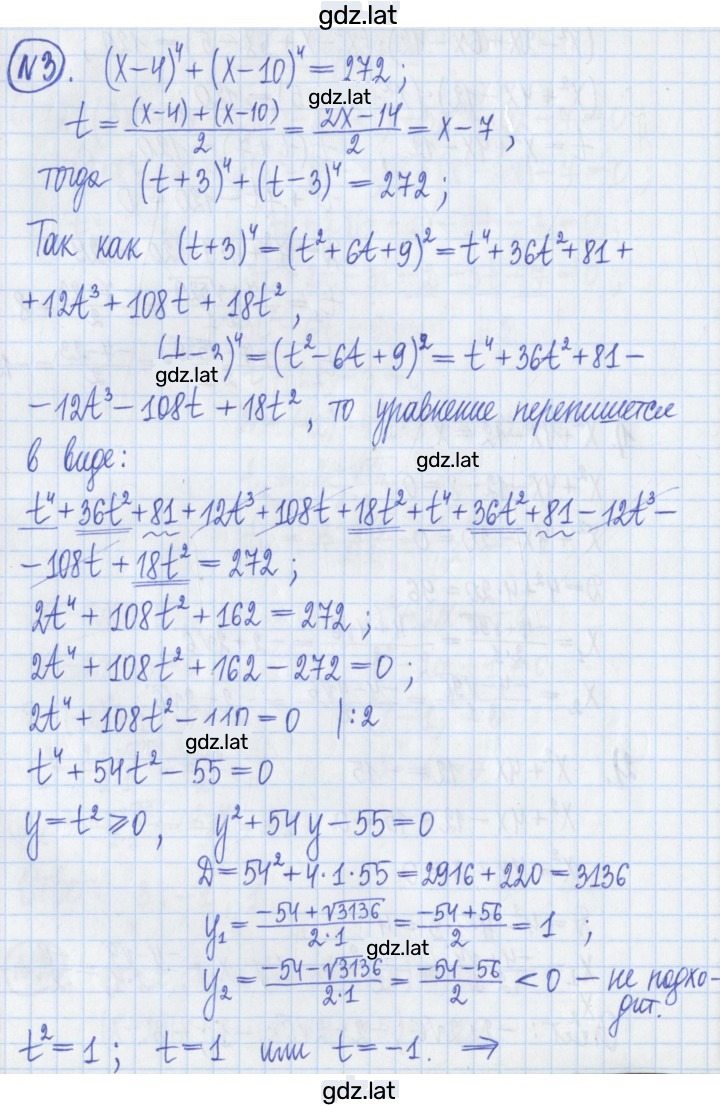 gdz.lat
N3. (x-4)⁴ + (x-10)⁴ = 272;
gdz.lat
t = ((x-4)+(x-10))/2 = (2x-14)/2 = x-7,
тогда (t+3)⁴ + (t-3)⁴ = 272;
Так как (t+3)⁴ = (t²+6t+9)² = t⁴+36t²+81+
+12t³+108t+18t²,
(t-3)⁴ = (t²-6t+9)² = t⁴+36t²+81-
gdz.lat
-12t³-108t+18t², то уравнение перепишется
в виде:
gdz.lat
t⁴+36t²+81+12t³+108t+18t²+t⁴+36t²+81-12t³-
-108t+18t² = 272;
2t⁴+108t²+162 = 272;
2t⁴+108t²+162-272 = 0;
2t⁴+108t²-110 = 0 |:2
gdz.lat
t⁴+54t²-55 = 0
y = t² ⩾ 0, y²+54y-55 = 0
Д = 54²+4·1·55 = 2916+220 = 3136
y₁ = (-54+√3136)/(2·1) = (-54+56)/2 = 1 ;
gdz.lat
y₂ = (-54-√3136)/(2·1) = (-54-56)/2 < 0 – не подхо-
дит.
t² = 1; t = 1 или t = -1. ⇒
gdz.lat